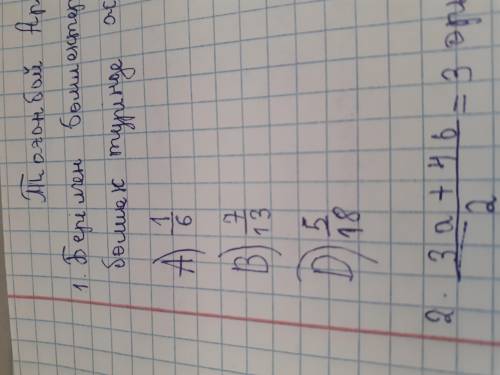 Тоғанбай
1. Берілген бөлшектер
бөлшек түрінде
A) 1/6
B) 7/13
D) 5/18
2. (3a + 4b)/2 = 3